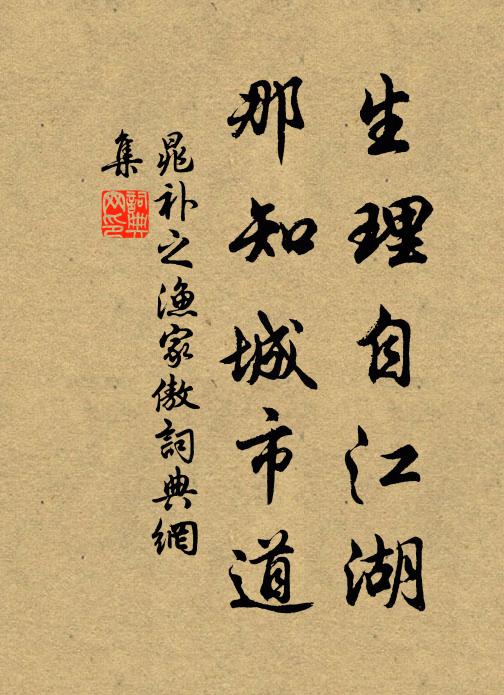 生理自江湖
那知城市道
晁补之渔家傲詞典網
集
詞典网印